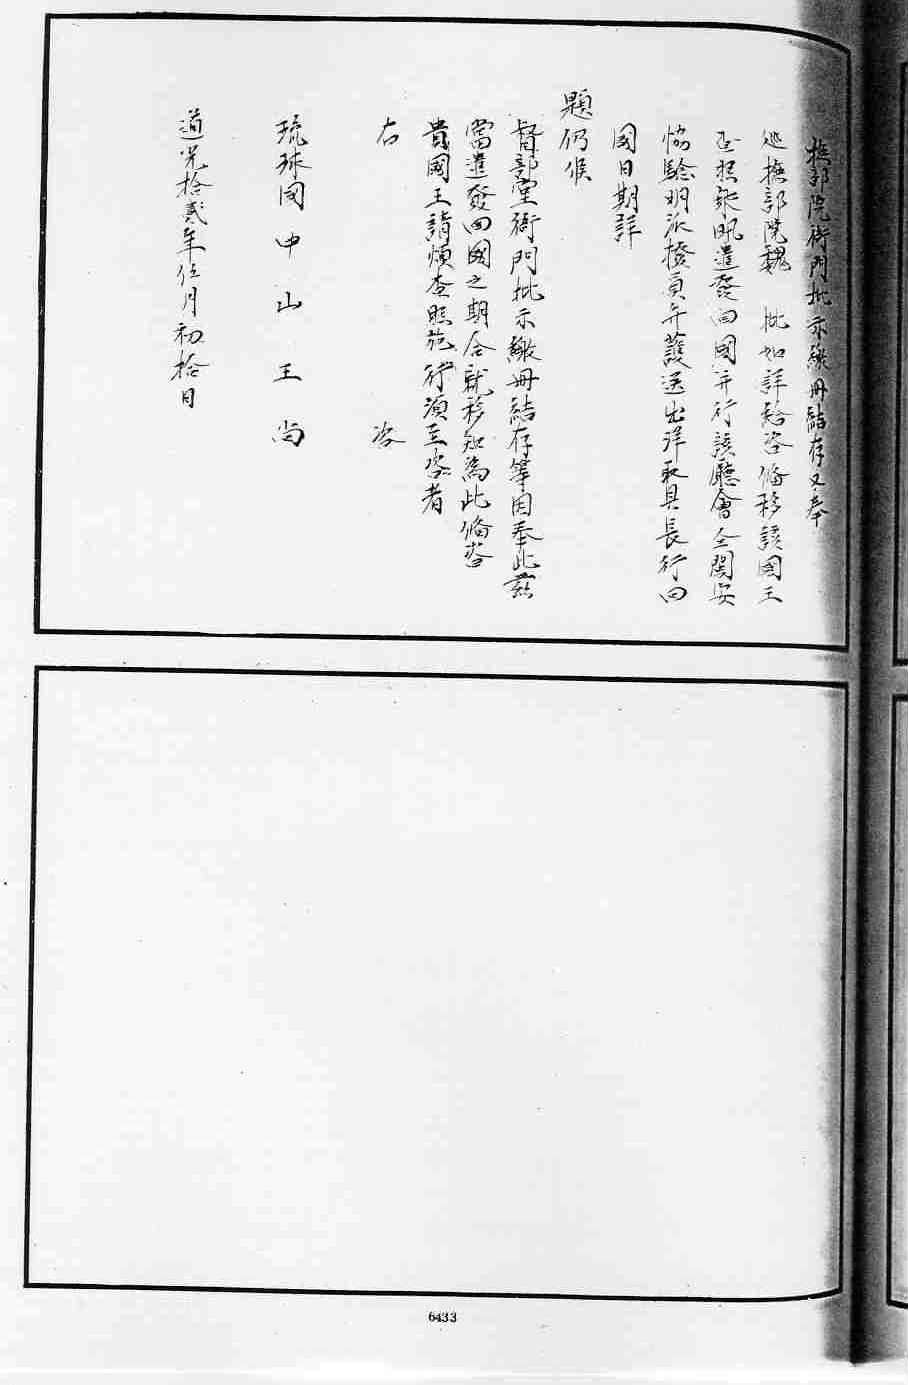 撫部院衙門批示繳冊結存又奉
巡撫部院魏　批如詳給咨俻移該國王
查照飭令遣發回國并行該廳會仝閩安
恊驗明派撥員弁護送出洋取具長行回
國日期詳
題仍候
督部堂衙門批示繳冊結存等因奉此茲
當遣發回國之期合就移知為此俻咨
貴國王請煩查照施行須至咨者
右　咨
琉球國中山王尚
道光拾貳年伍月初拾日
6433